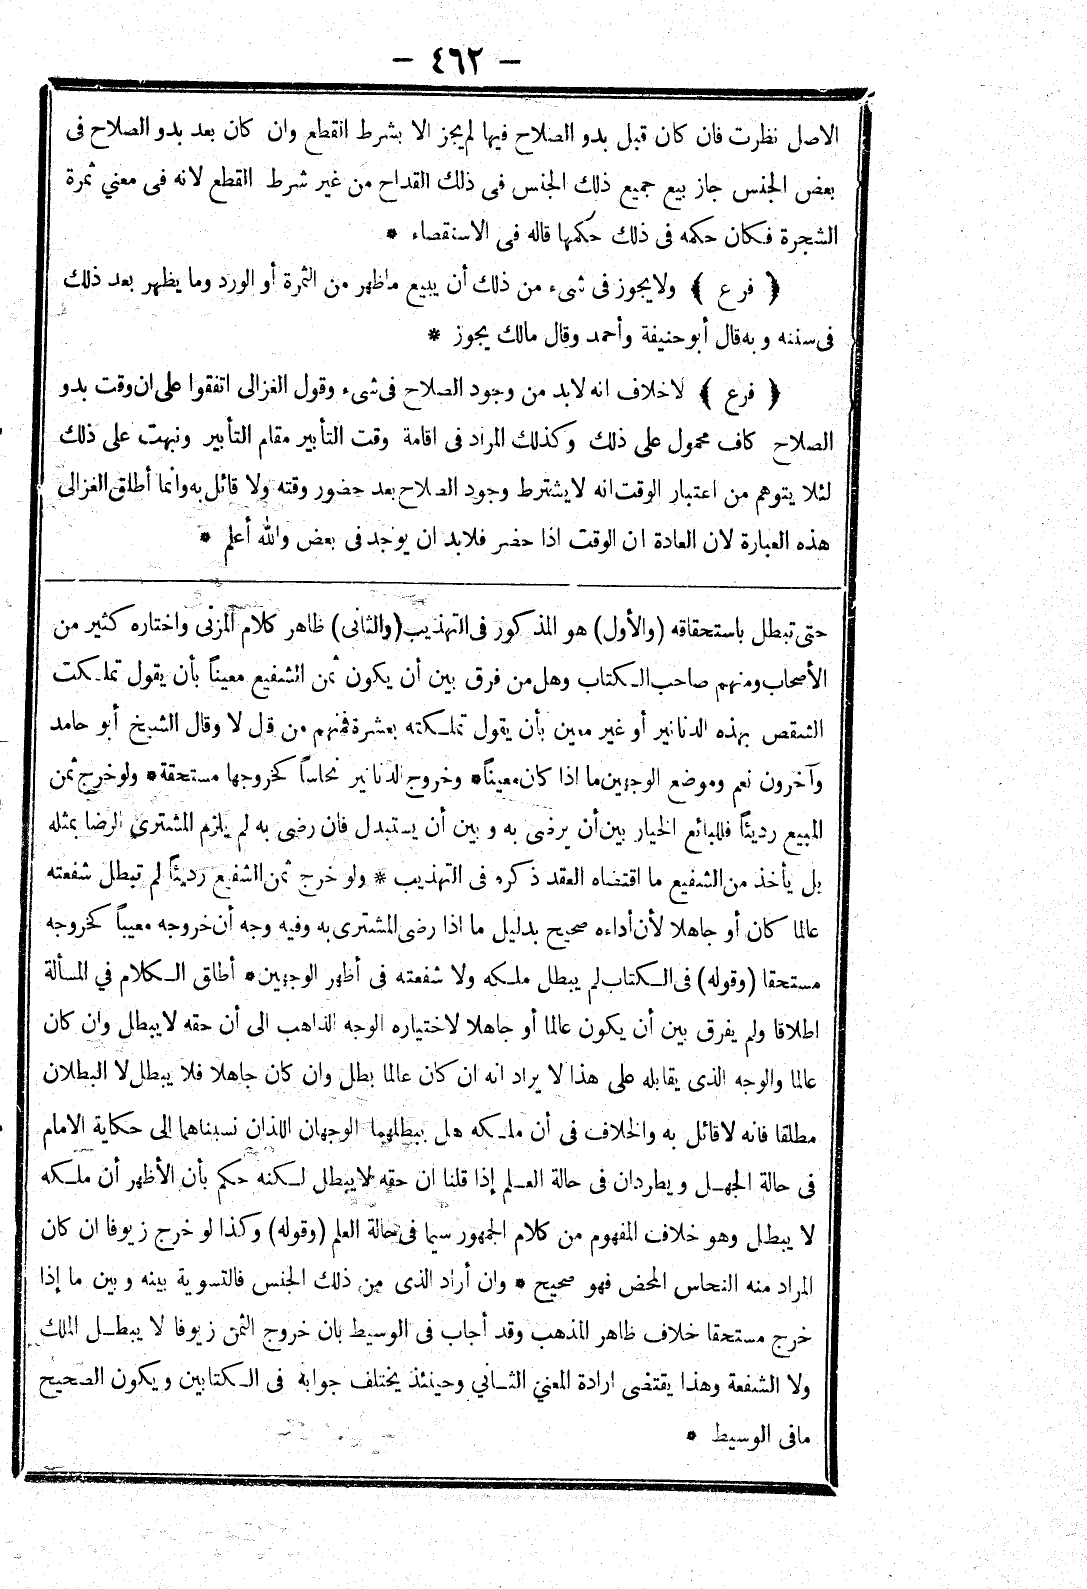 — ٤٦٢ —
الاصل نظرت فان كان قبل بدو الصلاح فيها لم يجز الا بشرط القطع وان كان بعد بدو الصلاح فى
بعض الجنس جاز بيع جميع ذلك الجنس فى ذلك القداح من غير شرط القطع لانه فى معني ثمرة
الشجرة فكان حكمه فى ذلك حكمها قاله فى الاستقصاء *
﴿ فرع ﴾ ولا يجوز فى شىء من ذلك أن يبيع ماظهر من الثمرة أو الورد وما يظهر بعد ذلك
فى سنته وبه قال أبوحنيفة وأحمد وقال مالك يجوز *
﴿ فرع ﴾ لاخلاف انه لابد من وجود الصلاح فى شىء وقول الغزالى اتفقوا على ان وقت بدو
الصلاح كاف محمول على ذلك وكذلك المراد فى اقامة وقت التأبير مقام التأبير ونبهت على ذلك
لئلا يتوهم من اعتبار الوقت انه لايشترط وجود الصلاح بعد حضور وقته ولا قائل به وانما أطلق الغزالى
هذه العبارة لان العادة ان الوقت اذا حضر فلابد ان يوجد فى بعض والله أعلم *
حتى تبطل باستحقاقه (والأول) هو المذكور فى التهذيب (والثانى) ظاهر كلام المزنى واختاره كثير من
الأصحاب ومنهم صاحب الكتاب وهل من فرق بين أن يكون ثمن الشفيع معيناً بأن يقول تملكت
الشقص بهذه الدنانير أو غير معين بأن يقول تملكته بعشرة فمنهم من قال لا وقال الشيخ أبو حامد
وآخرون نعم وموضع الوجهين ما اذا كان معيناً * وخروج الدنانير نحاساً كخروجها مستحقة * ولو خرج ثمن
المبيع رديئاً فللبائع الخيار بين أن يرضى به وبين أن يستبدل فان رضى به لم يلزم المشتري الرضا بمثله
بل يأخذ من الشفيع ما اقتضاه العقد ذكره فى التهذيب * ولو خرج ثمن الشفيع رديئاً لم تبطل شفعته
عالما كان أو جاهلا لأن أداءه صحيح بدليل ما اذا رضى المشترى به وفيه وجه أن خروجه معيباً كخروجه
مستحقا (وقوله) فى الكتاب لم يبطل ملكه ولا شفعته فى أظهر الوجهين * أطلق الكلام في المسألة
اطلاقا ولم يفرق بين أن يكون عالما أو جاهلا لاختياره الوجه الذاهب الى أن حقه لايبطل وان كان
عالما والوجه الذى يقابله على هذا لا يراد انه ان كان عالما بطل وان كان جاهلا فلا يبطل لا البطلان
مطلقا فانه لاقائل به والخلاف فى أن ملكه هل يبطلهما الوجهان اللذان نسبناهما الى حكاية الامام
فى حالة الجهل ويطردان فى حالة العلم إذا قلنا ان حقه لايبطل لكنه حكم بأن الأظهر أن ملكه
لا يبطل وهو خلاف المفهوم من كلام الجمهور سيما فى حالة العلم (وقوله) وكذا لو خرج زيوفا ان كان
المراد منه النحاس المحض فهو صحيح * وان أراد الذى من ذلك الجنس فالتسوية بينه وبين ما إذا
خرج مستحقا خلاف ظاهر المذهب وقد أجاب فى الوسيط بان خروج الثمن زيوفا لا يبطل الملك
ولا الشفعة وهذا يقتضى ارادة المعني الثاني وحينئذ يختلف جوابه فى الكتابين ويكون الصحيح
مافى الوسيط *